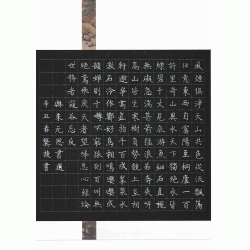 風煙俱淨天山共色從流飄蕩
任意東西自富陽至桐廬一百
許里奇山異水天下獨絕水皆
縹碧千丈見底游魚細石直視
無礙急湍甚箭猛浪若奔夾岸
高山皆生寒樹負勢競上互相
軒邈爭高直指千百成峰泉水
激石泠泠作響好鳥相鳴嚶嚶成
韻蟬則千轉不窮猿則百叫無
絕鳶飛戾天者望峰息心經綸
世務者
與朱元思書選
辛丑春書